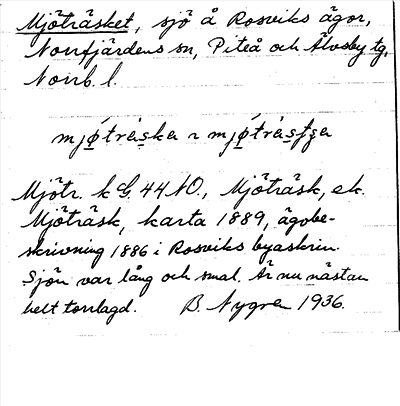 Mjöträsket, sjö å Rosviks ägor,
Norrfjärdens sn, Piteå och Älvsby tg,
Norrb. l.
Mjötr. k G. 44 NO., Mjöträsk, ek.
Mjöträsk, karta 1889, ägobe-
skrivning 1886 i Rosviks byaskrin.
Sjön var lång och smal. Är nu nästan
helt torrlagd. B. Nygren 1936.